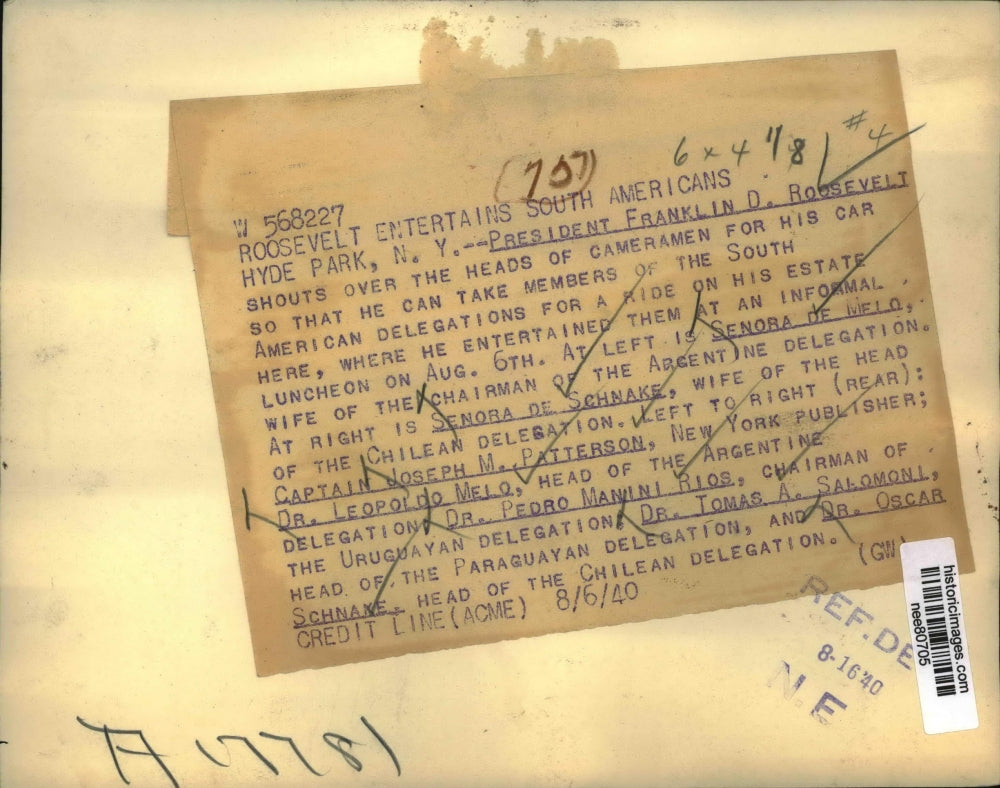 6 x 4 1/8 #4
(707)
W 568227
ROOSEVELT ENTERTAINS SOUTH AMERICANS
HYDE PARK, N. Y.--PRESIDENT FRANKLIN D. ROOSEVELT
SHOUTS OVER THE HEADS OF CAMERAMEN FOR HIS CAR
SO THAT HE CAN TAKE MEMBERS OF THE SOUTH
AMERICAN DELEGATIONS FOR A RIDE ON HIS ESTATE
HERE, WHERE HE ENTERTAINED THEM AT AN INFORMAL
LUNCHEON ON AUG. 6TH. AT LEFT IS SENORA DE MELO,
WIFE OF THE CHAIRMAN OF THE ARGENTINE DELEGATION.
AT RIGHT IS SENORA DE SCHNAKE, WIFE OF THE HEAD
OF THE CHILEAN DELEGATION. LEFT TO RIGHT (REAR):
CAPTAIN JOSEPH M. PATTERSON, NEW YORK PUBLISHER;
DR. LEOPOLDO MELO, HEAD OF THE ARGENTINE
DELEGATION; DR. PEDRO MANINI RIOS, CHAIRMAN OF
THE URUGUAYAN DELEGATION; DR. TOMAS A. SALOMONI,
HEAD OF THE PARAGUAYAN DELEGATION, AND DR. OSCAR
SCHNAKE, HEAD OF THE CHILEAN DELEGATION.
CREDIT LINE (ACME) 8/6/40 (GW)
REF. DE
8-16'40
N. E
historicimages.com
nee80705